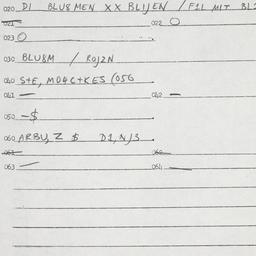 020 DI BLU8MEN XX BLIJEN / F1L MIT BL
021 — 022 O
023 O
030 BLU8M / ROJ2N
040 S+E, MO4C+KES (056
041 — 042 —
050 —$
060 ARBU, Z $ D1, N/3
061 — 062 —
063 — 064 —